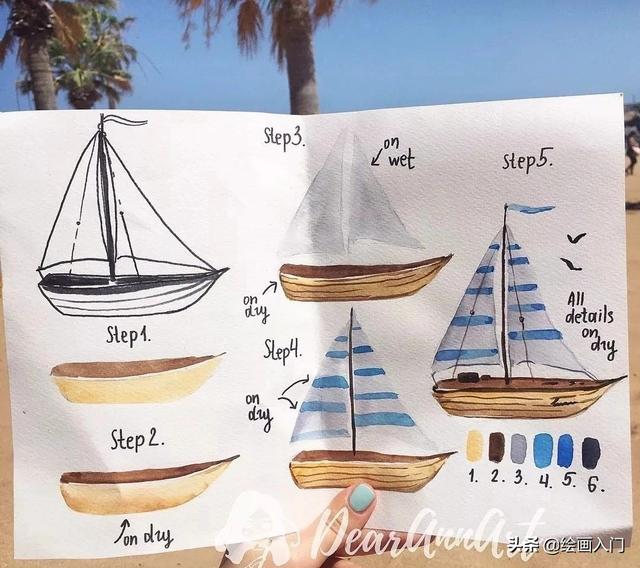 Step1.
Step2.
on dry
Step3.
on wet
on dry
Step4.
on dry
Step5.
All
details
on
dry
1. 2. 3. 4. 5. 6.
DearAnnArt
头条 @绘画入门